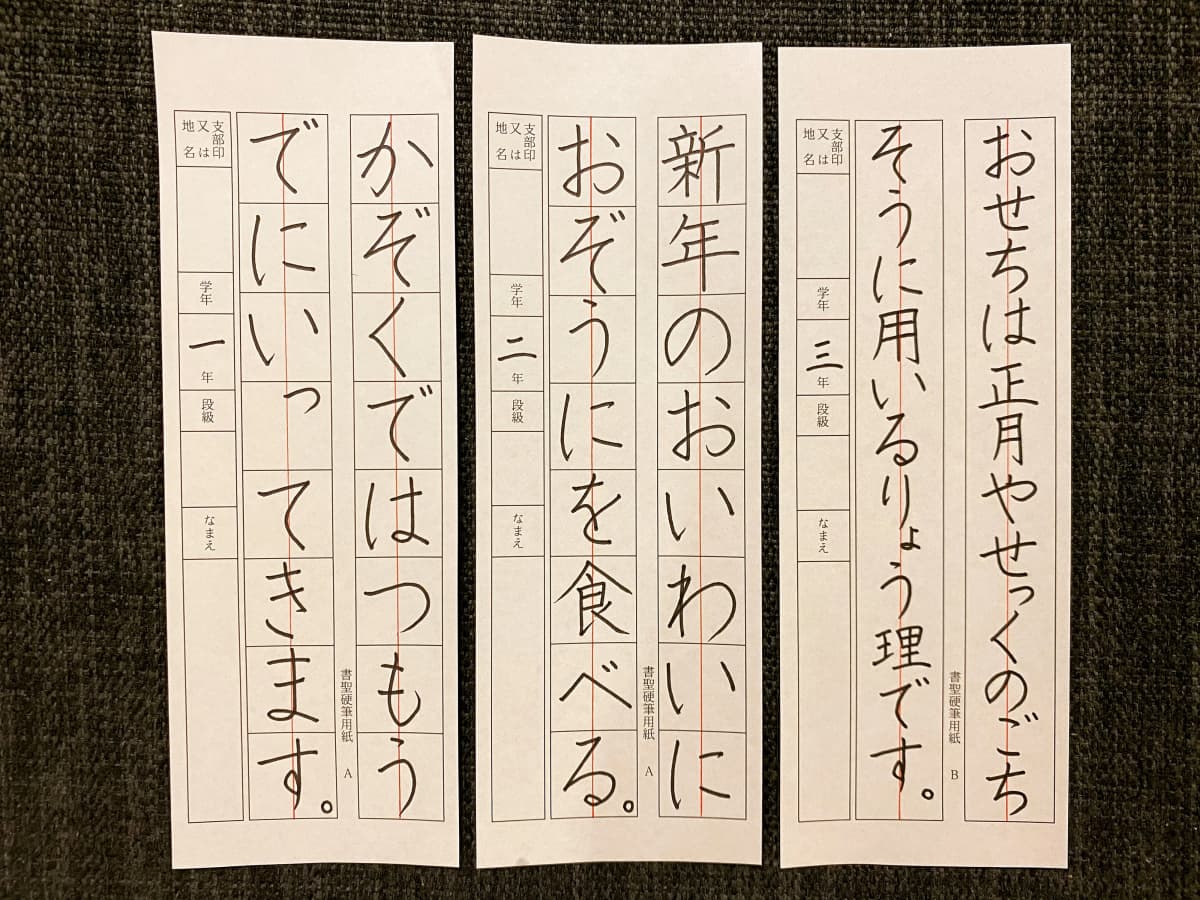 かぞくではつもう
書聖硬筆用紙 A
でにいってきます。
支部印
又は
地名
学年
一年
段級
なまえ
新年のおいわいに
書聖硬筆用紙 A
おぞうにを食べる。
支部印
又は
地名
学年
二年
段級
なまえ
おせちは正月やせっくのごち
書聖硬筆用紙 B
そうに用いるりょう理です。
支部印
又は
地名
学年
三年
段級
なまえ